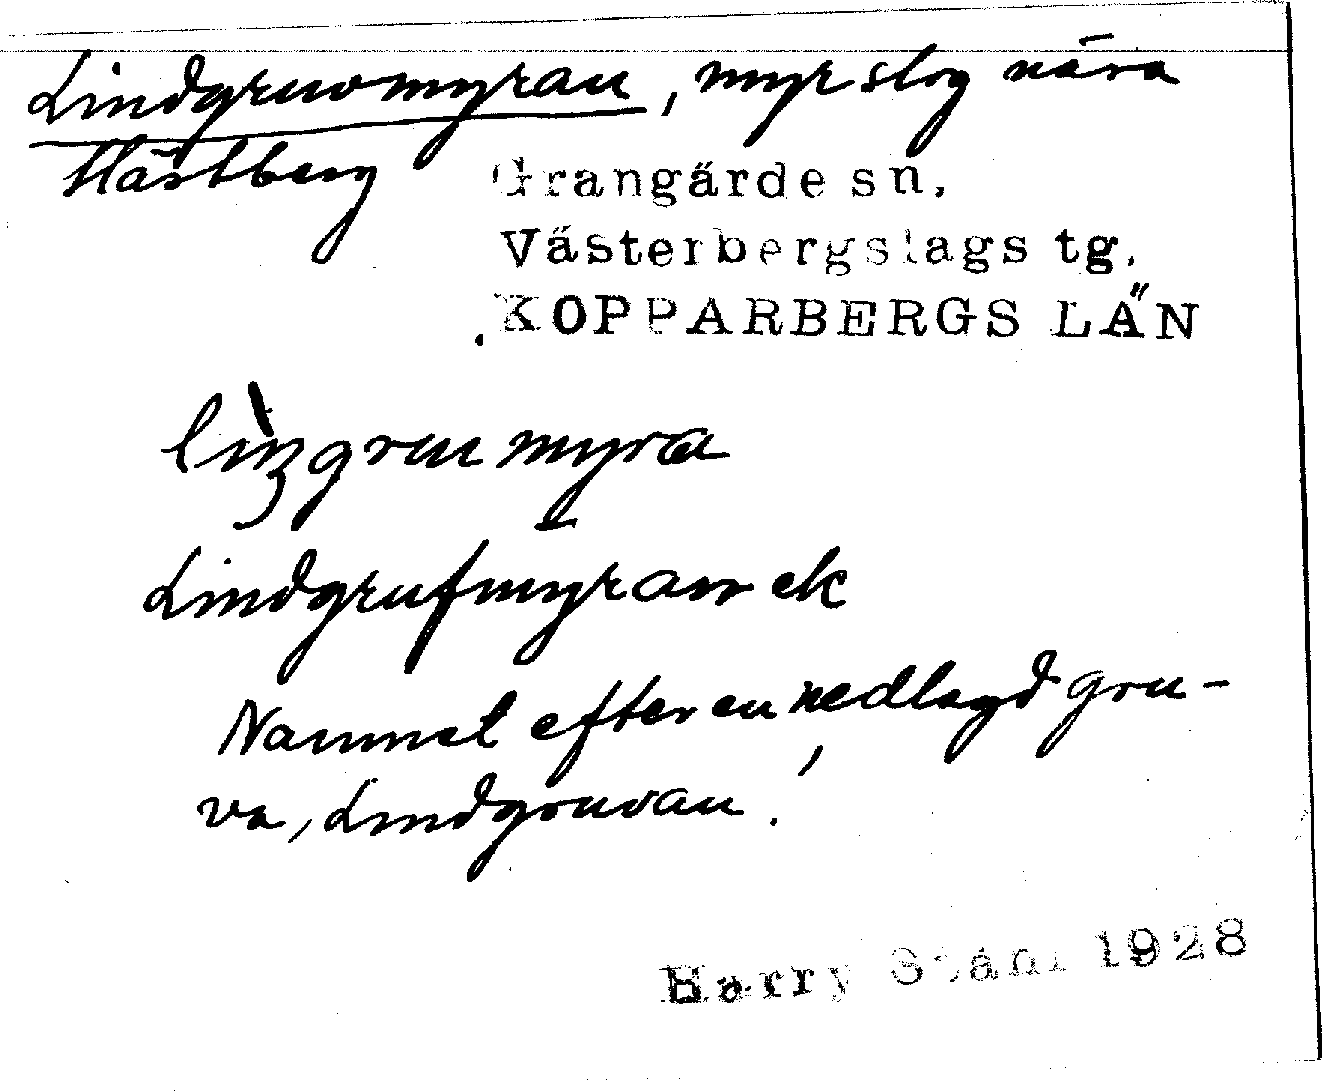 Lindgruvmyran, myrslog nära
Hästberg
Grangärde sn.
Västerbergslags tg.
KOPPARBERGS LÄN
gruu myra
Lindgrufmyran ek
Namnet efter en nedlagd gru-
va, Lindgruvan.
Harry Ståhl 1928